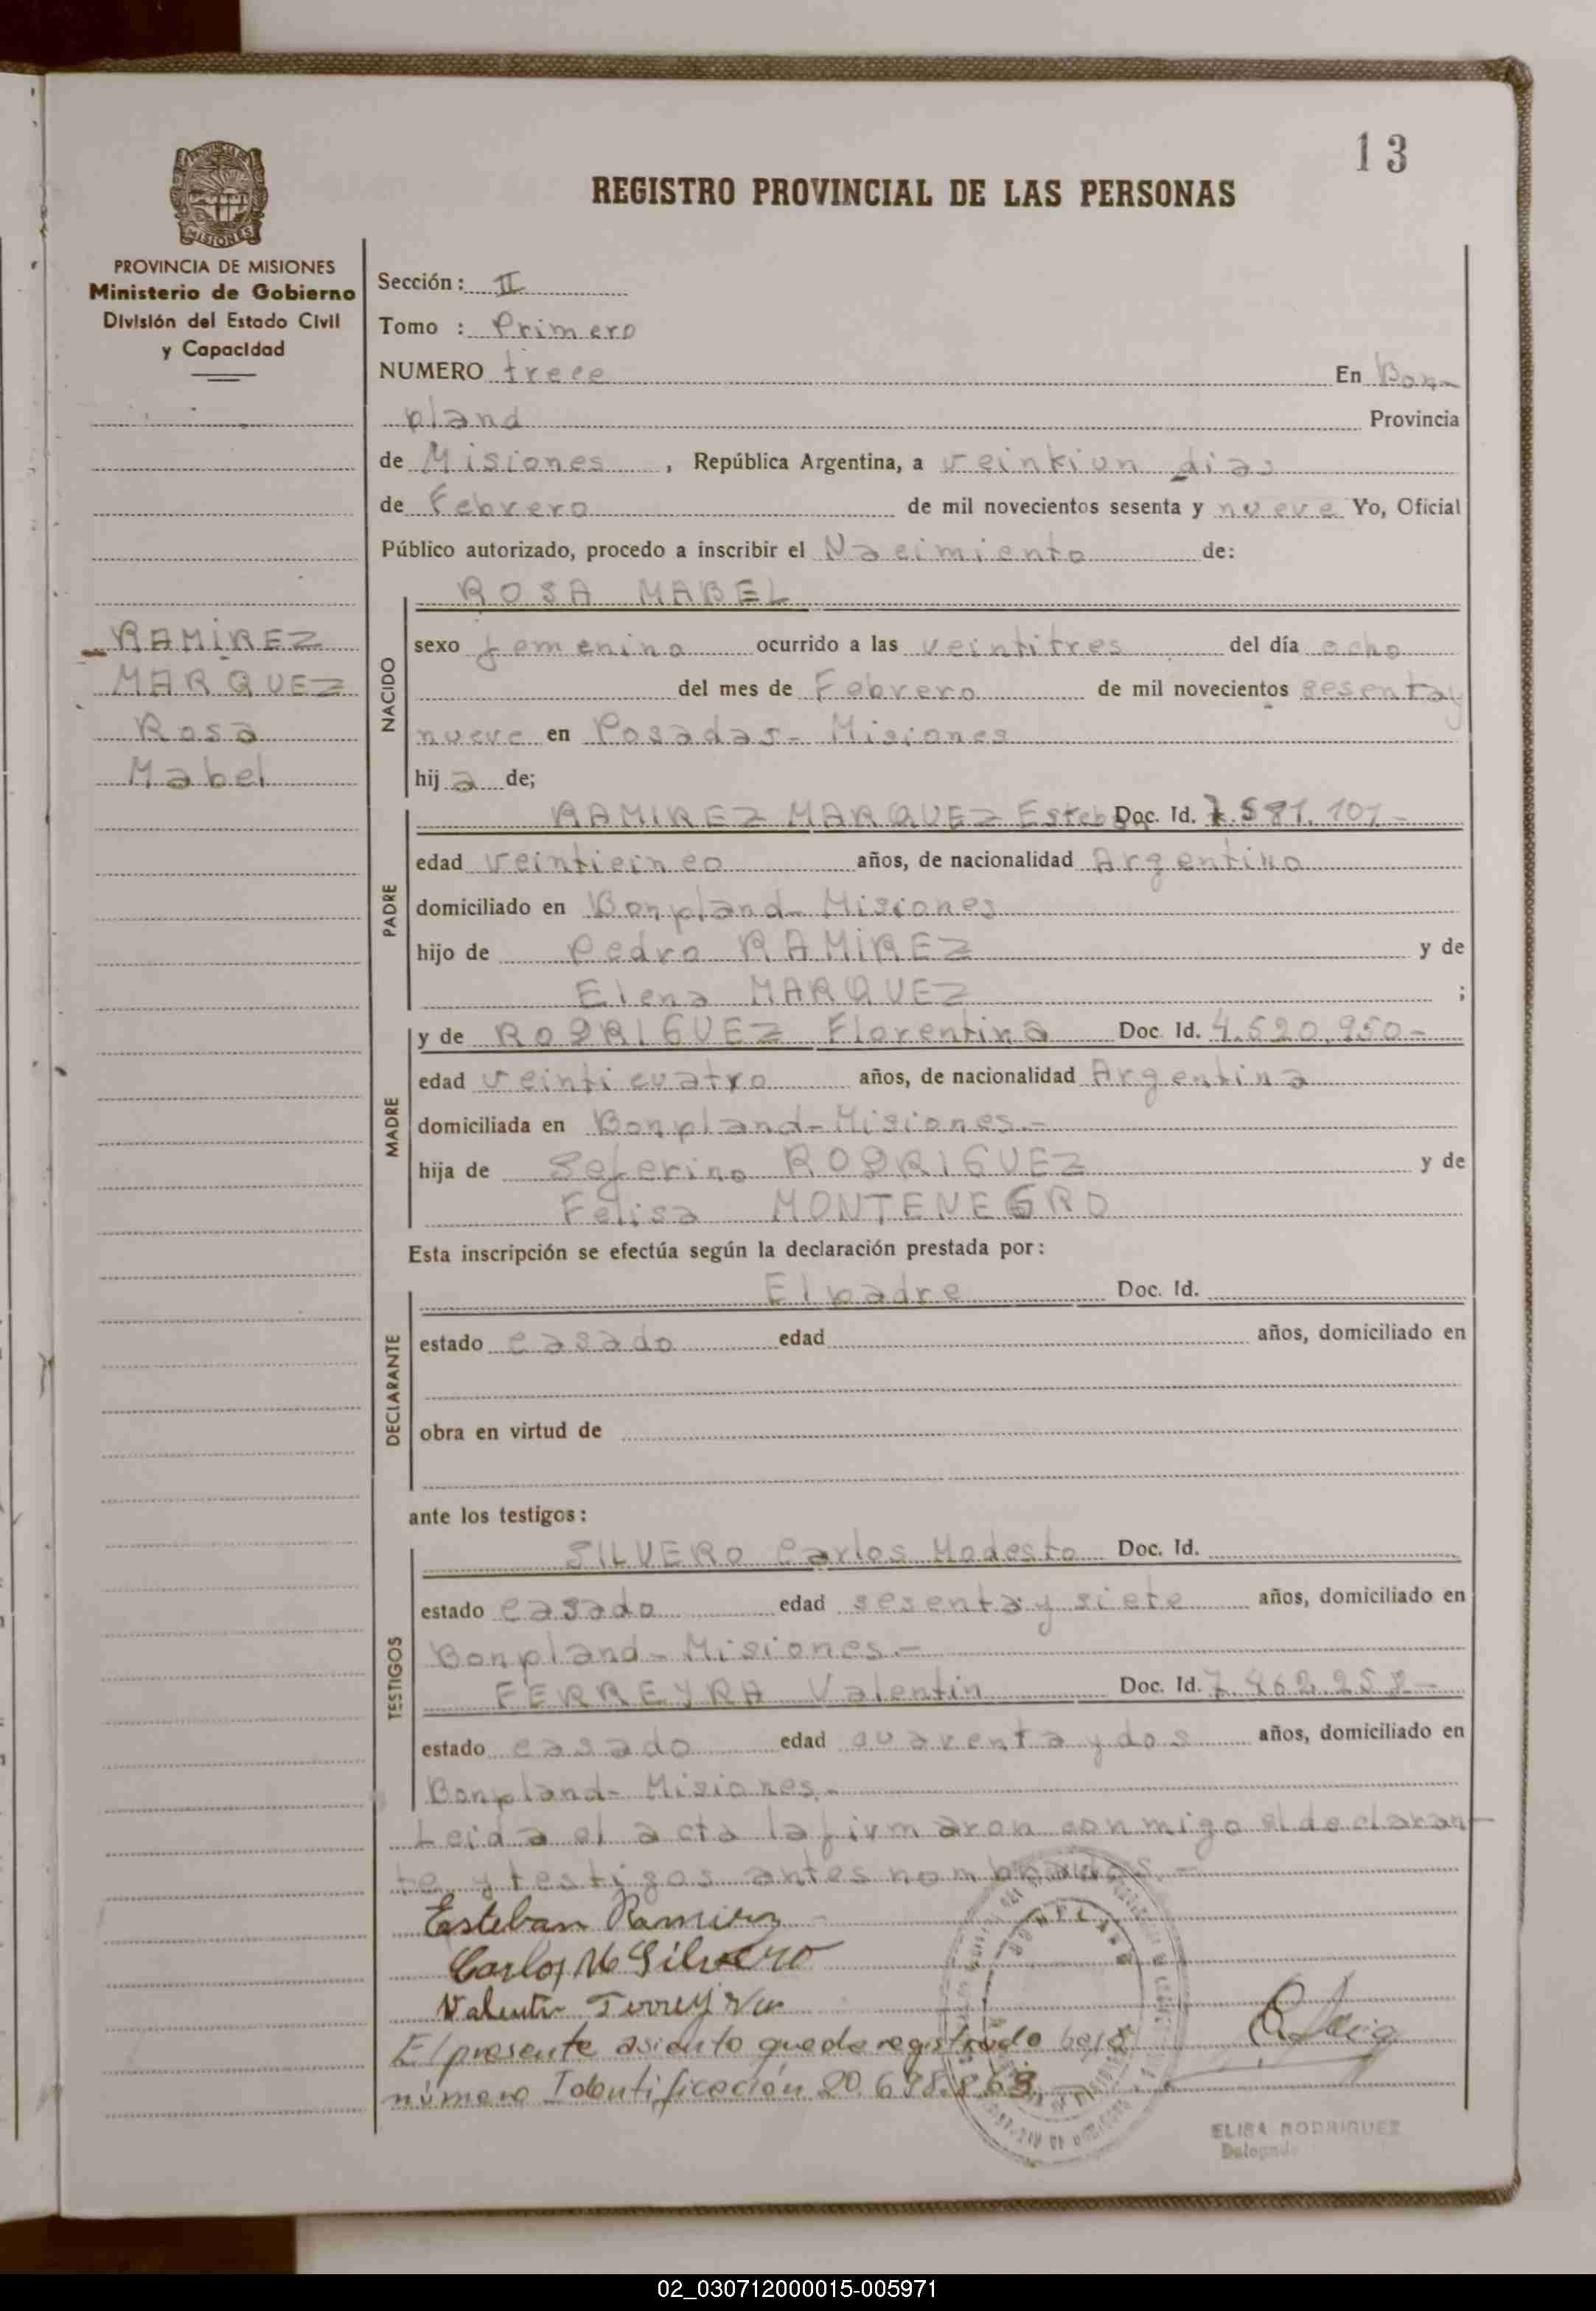 13
REGISTRO PROVINCIAL DE LAS PERSONAS
MISIONES
PROVINCIA DE MISIONES
Ministerio de Gobierno
División del Estado Civil
y Capacidad
RAMÍREZ
MARQUEZ
Rosa
Mabel
Sección: II
Tomo : Primero
NUMERO trece En Bon-
pland Provincia
de Misiones, República Argentina, a veintiun días
de Febrero de mil novecientos sesenta y nueve Yo, Oficial
Público autorizado, procedo a inscribir el Nacimiento de:
ROSA MABEL
NACIDO
sexo femenino ocurrido a las veintitres del día ocho
del mes de Febrero de mil novecientos sesenta y
nueve en Posadas- Misiones
hija de;
PADRE
RAMIREZ MARQUEZ Esteban Doc. Id. 7.581.101-
edad veinticinco años, de nacionalidad Argentino
domiciliado en Bonpland- Misiones
hijo de Pedro RAMÍREZ y de
Elena MARQUEZ ;
MADRE
y de RODRIGUEZ Florentina Doc. Id. 4.520.950-
edad veinticuatro años, de nacionalidad Argentina
domiciliada en Bonpland-Misiones.-
hija de Seferino RODRIGUEZ y de
Felisa MONTENEGRO
Esta inscripción se efectúa según la declaración prestada por:
DECLARANTE
El padre Doc. Id.
estado casado edad años, domiciliado en
obra en virtud de
ante los testigos:
TESTIGOS
SILVERO Carlos Modesto Doc. Id.
estado casado edad sesenta y siete años, domiciliado en
Bonpland- Misiones.-
FERREYRA Valentín Doc. Id. 7.462.258-
estado casado edad cuarenta y dos años, domiciliado en
Bonpland- Misiones.-
Leída el acta la firmaron conmigo el declaran-
te y testigos antes nombrados.-
Esteban Ramirez
Carlos M Silvero
Valentin Ferreyra
El presente asiento queda registrado bajo
número Identificación 20.698.863
BONPLAND
ELISA RODRIGUEZ
Delegada
02_030712000015-005971